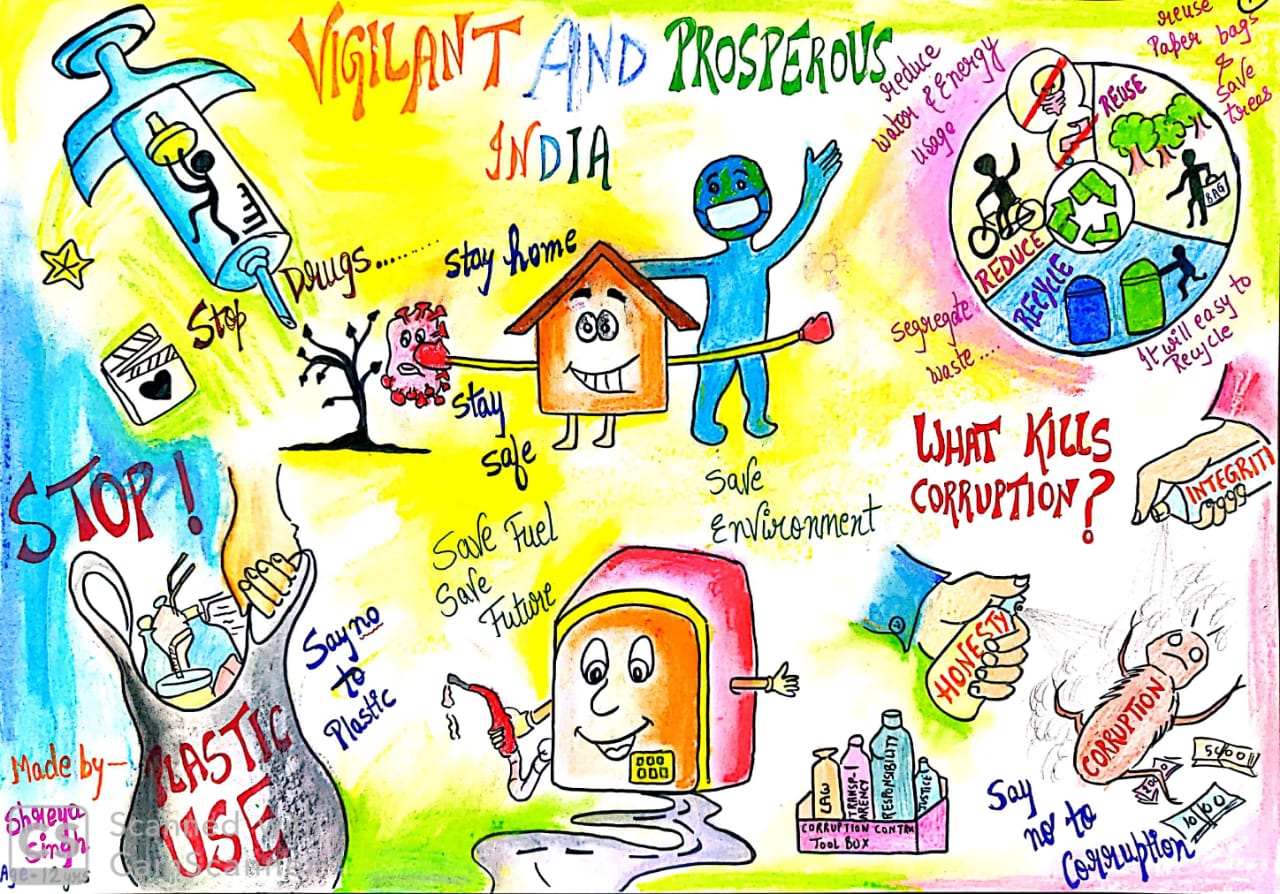 VIGILANT AND PROSPEROUS
INDIA
reduce
water & Energy
usage
reuse
Paper bags
&
save
trees
REUSE
BAG
REDUCE
RECYCLE
Segregate
waste....
It will easy to
Recycle
Drugs........
Stop
stay home
stay
safe
Save
Environment
WHAT KILLS
CORRUPTION?
INTEGRITI
HONESTY
CORRUPTION
STOP!
Say no
to
Plastic
PLASTIC
USE
Save Fuel
Save
Future
LAW
TRANSP-
ARENCY
RESPONSIBILITY
JUSTICE
CORRUPTION CONTR
TOOL BOX
Say
no to
Corruption
Made by—
Shreya
Singh
Age-12yrs
CS
Scanned
CamScan